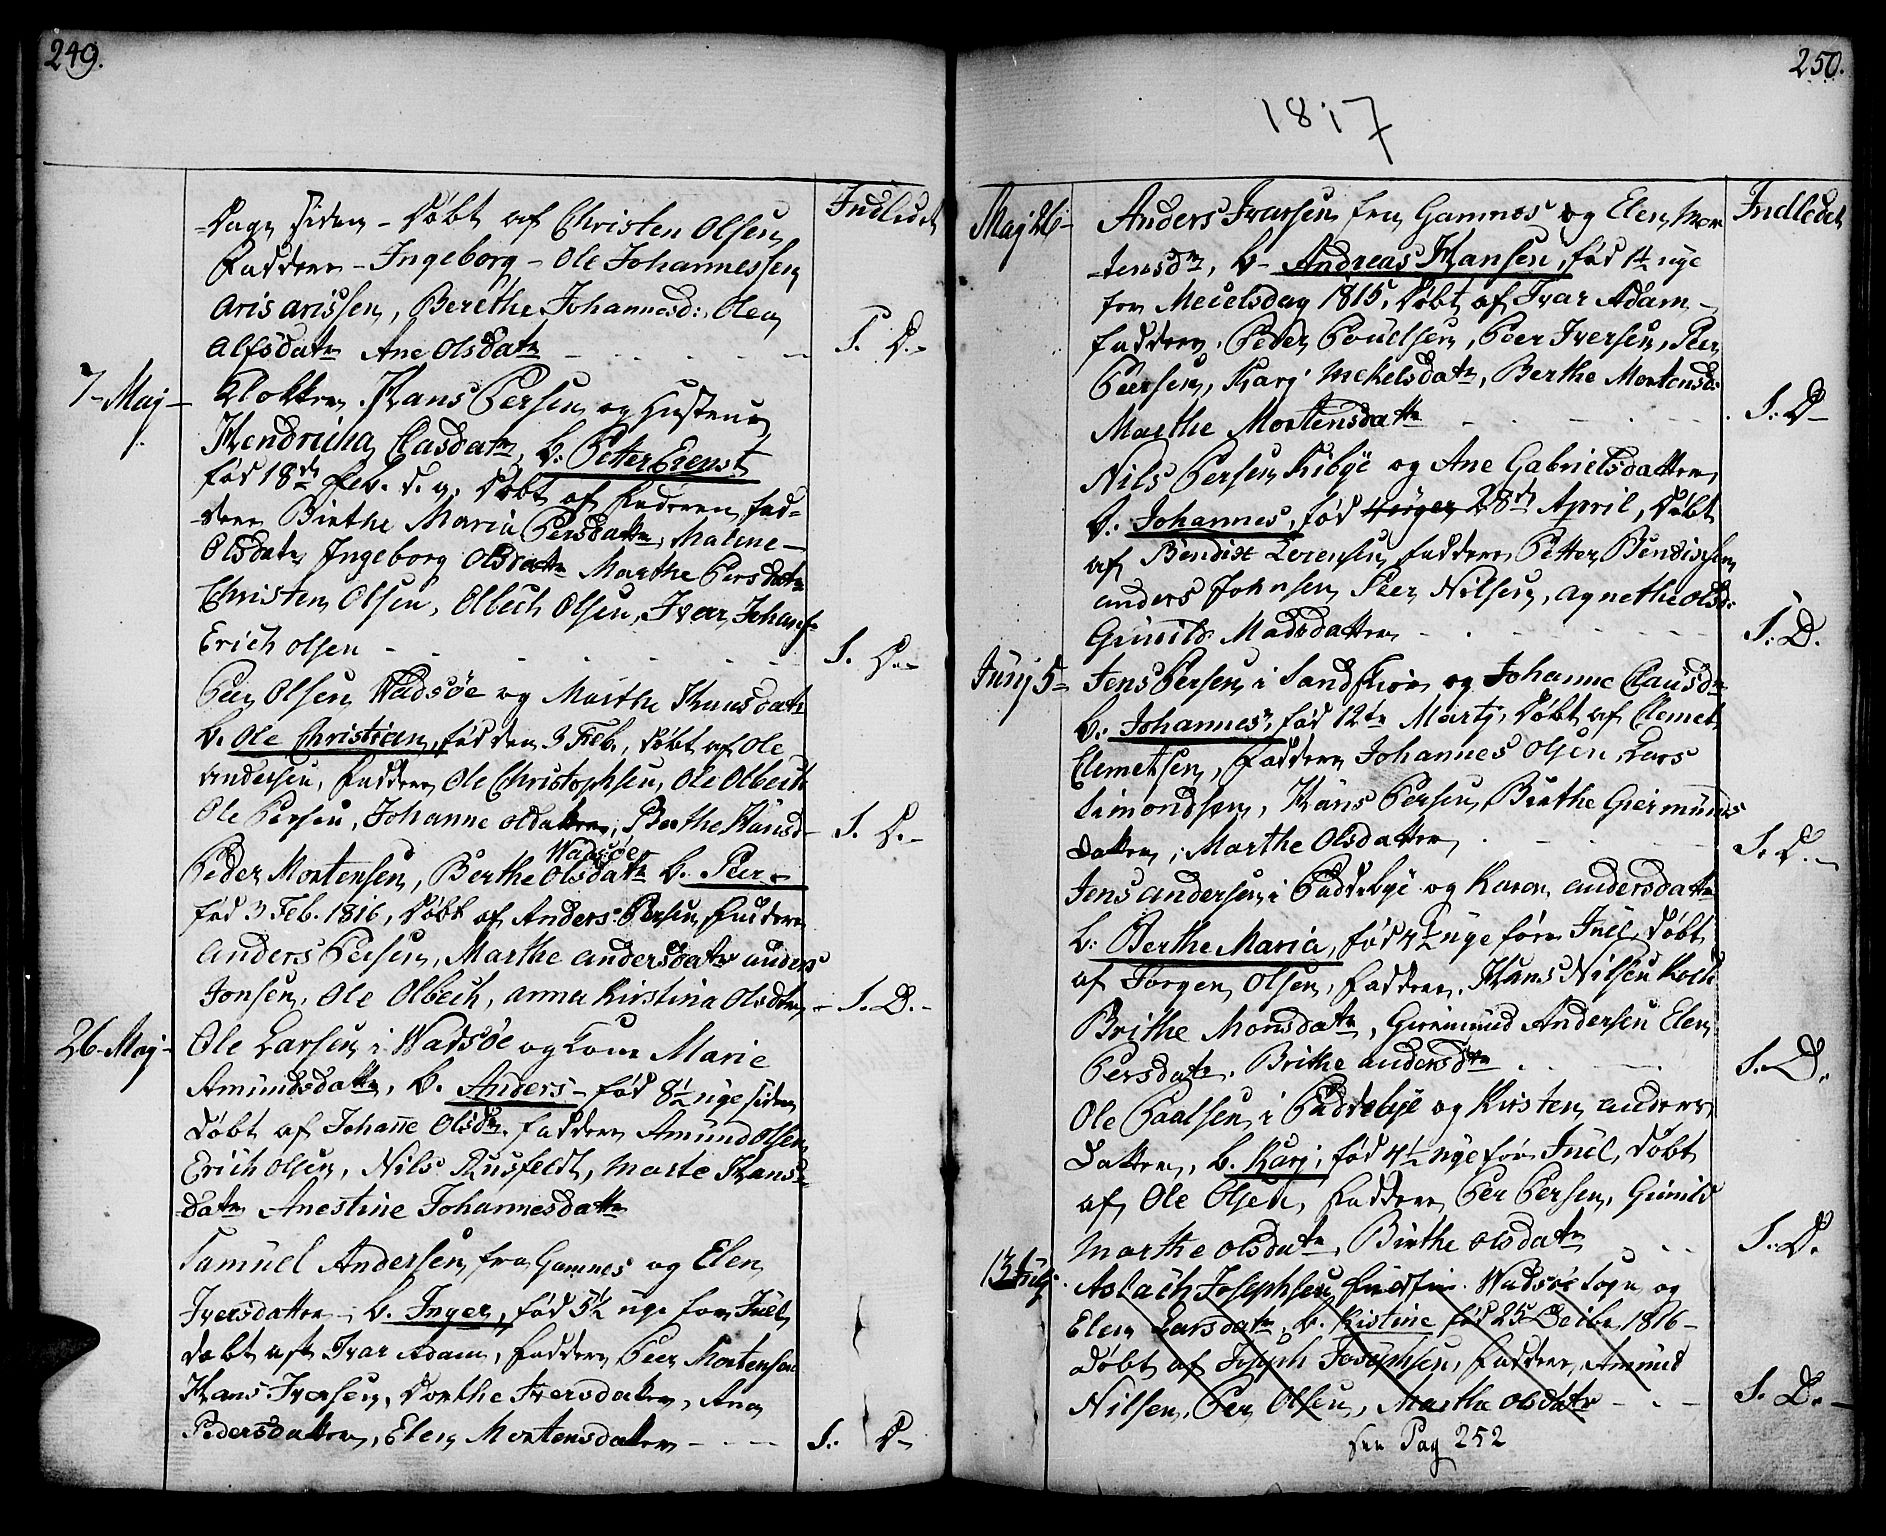 249.
Dage siden - Døbt af Christen Olsen
Faddere - Ingeborg - Ole Johannessen
Aris Arissen, Berethe Johannesd: Olea
Alfsdatr Ane Olsdatr
Indledet
S. D.-
7- Maj - Klokker Hans Persen og Hustrue
Hendricha Clasdatr, b: Peter Ernst
fød 18de Feb. d. a. Døbt af Faderen, Fad-
-dere Birthe Maria Persdatr, Malene
Olsdatr Ingeborg Olsdatr Marthe Persdatr
Christen Olsen, Olbech Olsen, Ivar Johans-
Erich Olsen -
S. D.-
Peer Olsen Wadsøe og Marthe Hansdatr
b. Ole Christian, fød den 3 Feb, døbt af Ole
Andersen, Faddere Ole Christophsen, Ole Olbech
Ole Persen, Johanne Olsdatter, Berthe Hansd-
S. D.-
Wadsøe
Peder Mortensen, Berthe Olsdatr b. Peer -
fød 3 Feb. 1816, Døbt af Anders Persen, Faddere
Anders Persen, Marthe Andersdatr Anders
Jonsen, Ole Olbech, Anna Kirstina Olsdatr
- S. D.-
26- Maj - Ole Larsen i Wadsøe og Kone Marie
Amundsdatr, b. Anders - fød 8½ uge siden
Døbt af Johane Olsdr. Faddere Amund Olsen
Erich Olsen, Nils Rusfeldt, Marte Hans-
-datr Anestine Johannesdatr
Samuel Andersen fra Gamnes og Elen
Iversdatter, b. Inger, fød 5½ uge før Juel
døbt af Ivar Adam, Faddere Peer Mortensen
Hans Iversen, Dorthe Iversdatter, Ana
Pedersdatter, Elen Mortensdatter - - -
S. D-
250.
1817
Maj 26- Anders Ivarsen fra Gamnes og Elen Mor
-tensdr, b- Andreas Hansen, fød 1½ uge
før Mechelsdag 1815, Døbt af Ivar Adam -
Faddere, Peder Pouelsen, Peer Iversen, Peer
Peersen, Karj Mekelsdatr, Berthe Mortensd:
Marthe Mortensdatr
Indledet
S. D-
Nils Persen Kibye og Ane Gabrielsdatter
b. Johannes, fød 28de April, Døbt
af Bendix Lorensen, Faddere Petter Bendixsen
Anders Johnsen Peer Nilsen, Agnethe Olsd:
Gunild Madsdatter -
S. D.
Junj 5- Jens Persen i Sandskiør og Johanne Clausdr
b. Johannes, fød 12te Martj, Døbt af Clemet
Clemetsen, Faddere Johannes Olsen, Lars
Simondsen, Hans Persen, Birthe Giermunds
Datter, Marthe Olsdatter
S. D.-
Jens Andersen i Paddebye og Karen Andersdatr
b: Berthe Maria, fød 4½ uge føre Juel, Døbt
af Jørgen Olsen, Faddere, Hans Nilsen Kock
Brithe Monsdatr, Giermund Andersen Elen
Persdatr, Brithe Andersdtr
S. D.
Ole Paalsen i Paddebye og Kirsten Anders
Datter, b. Karj, fød 4½ uge før Juel, Døbt
af Ole Olsen, Faddere Per Persen, Gunild
Marthe Olsdatr, Birthe Olsdatr
S. D.
13 Julj. Aslach Josephsen Wadsøe Sogn og
Elen Larsdatr, b. Kistine fød 25 Decbr 1816-
Døbt af Joseph Josephsen, Faddere, Amund
Nilsen, Per Olsen, Martha Olsdatr - - -
S. D.-
see Pag 252